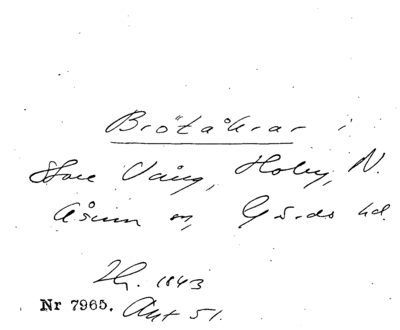 Brötåkrar i
Store Vång, Holby, N.
Åsum sn, Gärds hd.
Lh. 1843
Nr 7965. Akt 51.